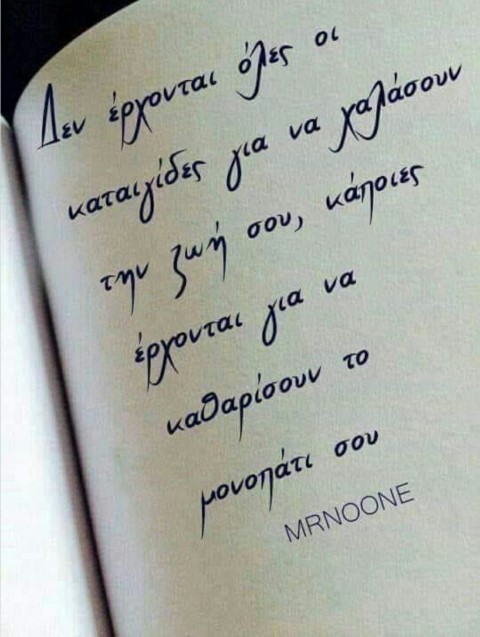 Δεν έρχονται όλες οι
καταιγίδες για να χαλάσουν
την ζωή σου, κάποιες
έρχονται για να
καθαρίσουν το
μονοπάτι σου
MRNOONE